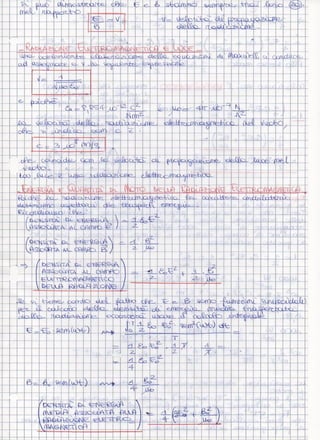 Si può dimostrare che E e B stanno sempre tra loro
nel rapporto
E/B = v
v = velocità di propagazione
della radiazione
RADIAZIONE ELETTROMAGNETICA E LUCE
delle equazioni di Maxwell
ad assegnare a v la seguente espressione
v = 1/√(μ₀ε₀)
e poiché
ε₀ = 8,854 · 10⁻¹² C²/Nm² e μ₀ = 4π · 10⁻⁷ N/A²
la velocità della radiazione elettromagnetica nel vuoto,
che si indica con c è
c = 3 · 10⁸ m/s
che coincide con la velocità di propagazione della luce nel
vuoto.
La luce è una radiazione elettromagnetica
ENERGIA E QUANTITÀ DI MOTO DELLA RADIAZIONE ELETTROMAGNETICA
Poiché la radiazione elettromagnetica ha
energia.
Ricordiamo che:
(DENSITÀ DI ENERGIA ASSOCIATA AL CAMPO E) = 1/2 ε₀E²
(DENSITÀ DI ENERGIA ASSOCIATA AL CAMPO B) = 1/2 B²/μ₀
→ (DENSITÀ DI ENERGIA ASSOCIATA AL CAMPO ELETTROMAGNETICO DELLA RADIAZIONE) = 1/2 ε₀E² + 1/2 B²/μ₀
Se si tiene conto del fatto che E e B sono funzioni sinusoidali
per il calcolo della densità di energia media trasportata
dalla radiazione occorrerà usare il calcolo integrale
E = E₀ sen(ωt) → ∫₀ᵀ 1/2 ε₀ E₀² sen²(ωt) dt / T =
= 1/2 ε₀E₀² · 1/2 T · 1/T =
= 1/4 ε₀E₀²
B = B₀ sen(ωt) → 1/4 B₀²/μ₀
(DENSITÀ DI ENERGIA MEDIA ASSOCIATA ALLA RADIAZIONE ELETTROMAGNETICA) = 1/4 (ε₀E₀² + B₀²/μ₀)